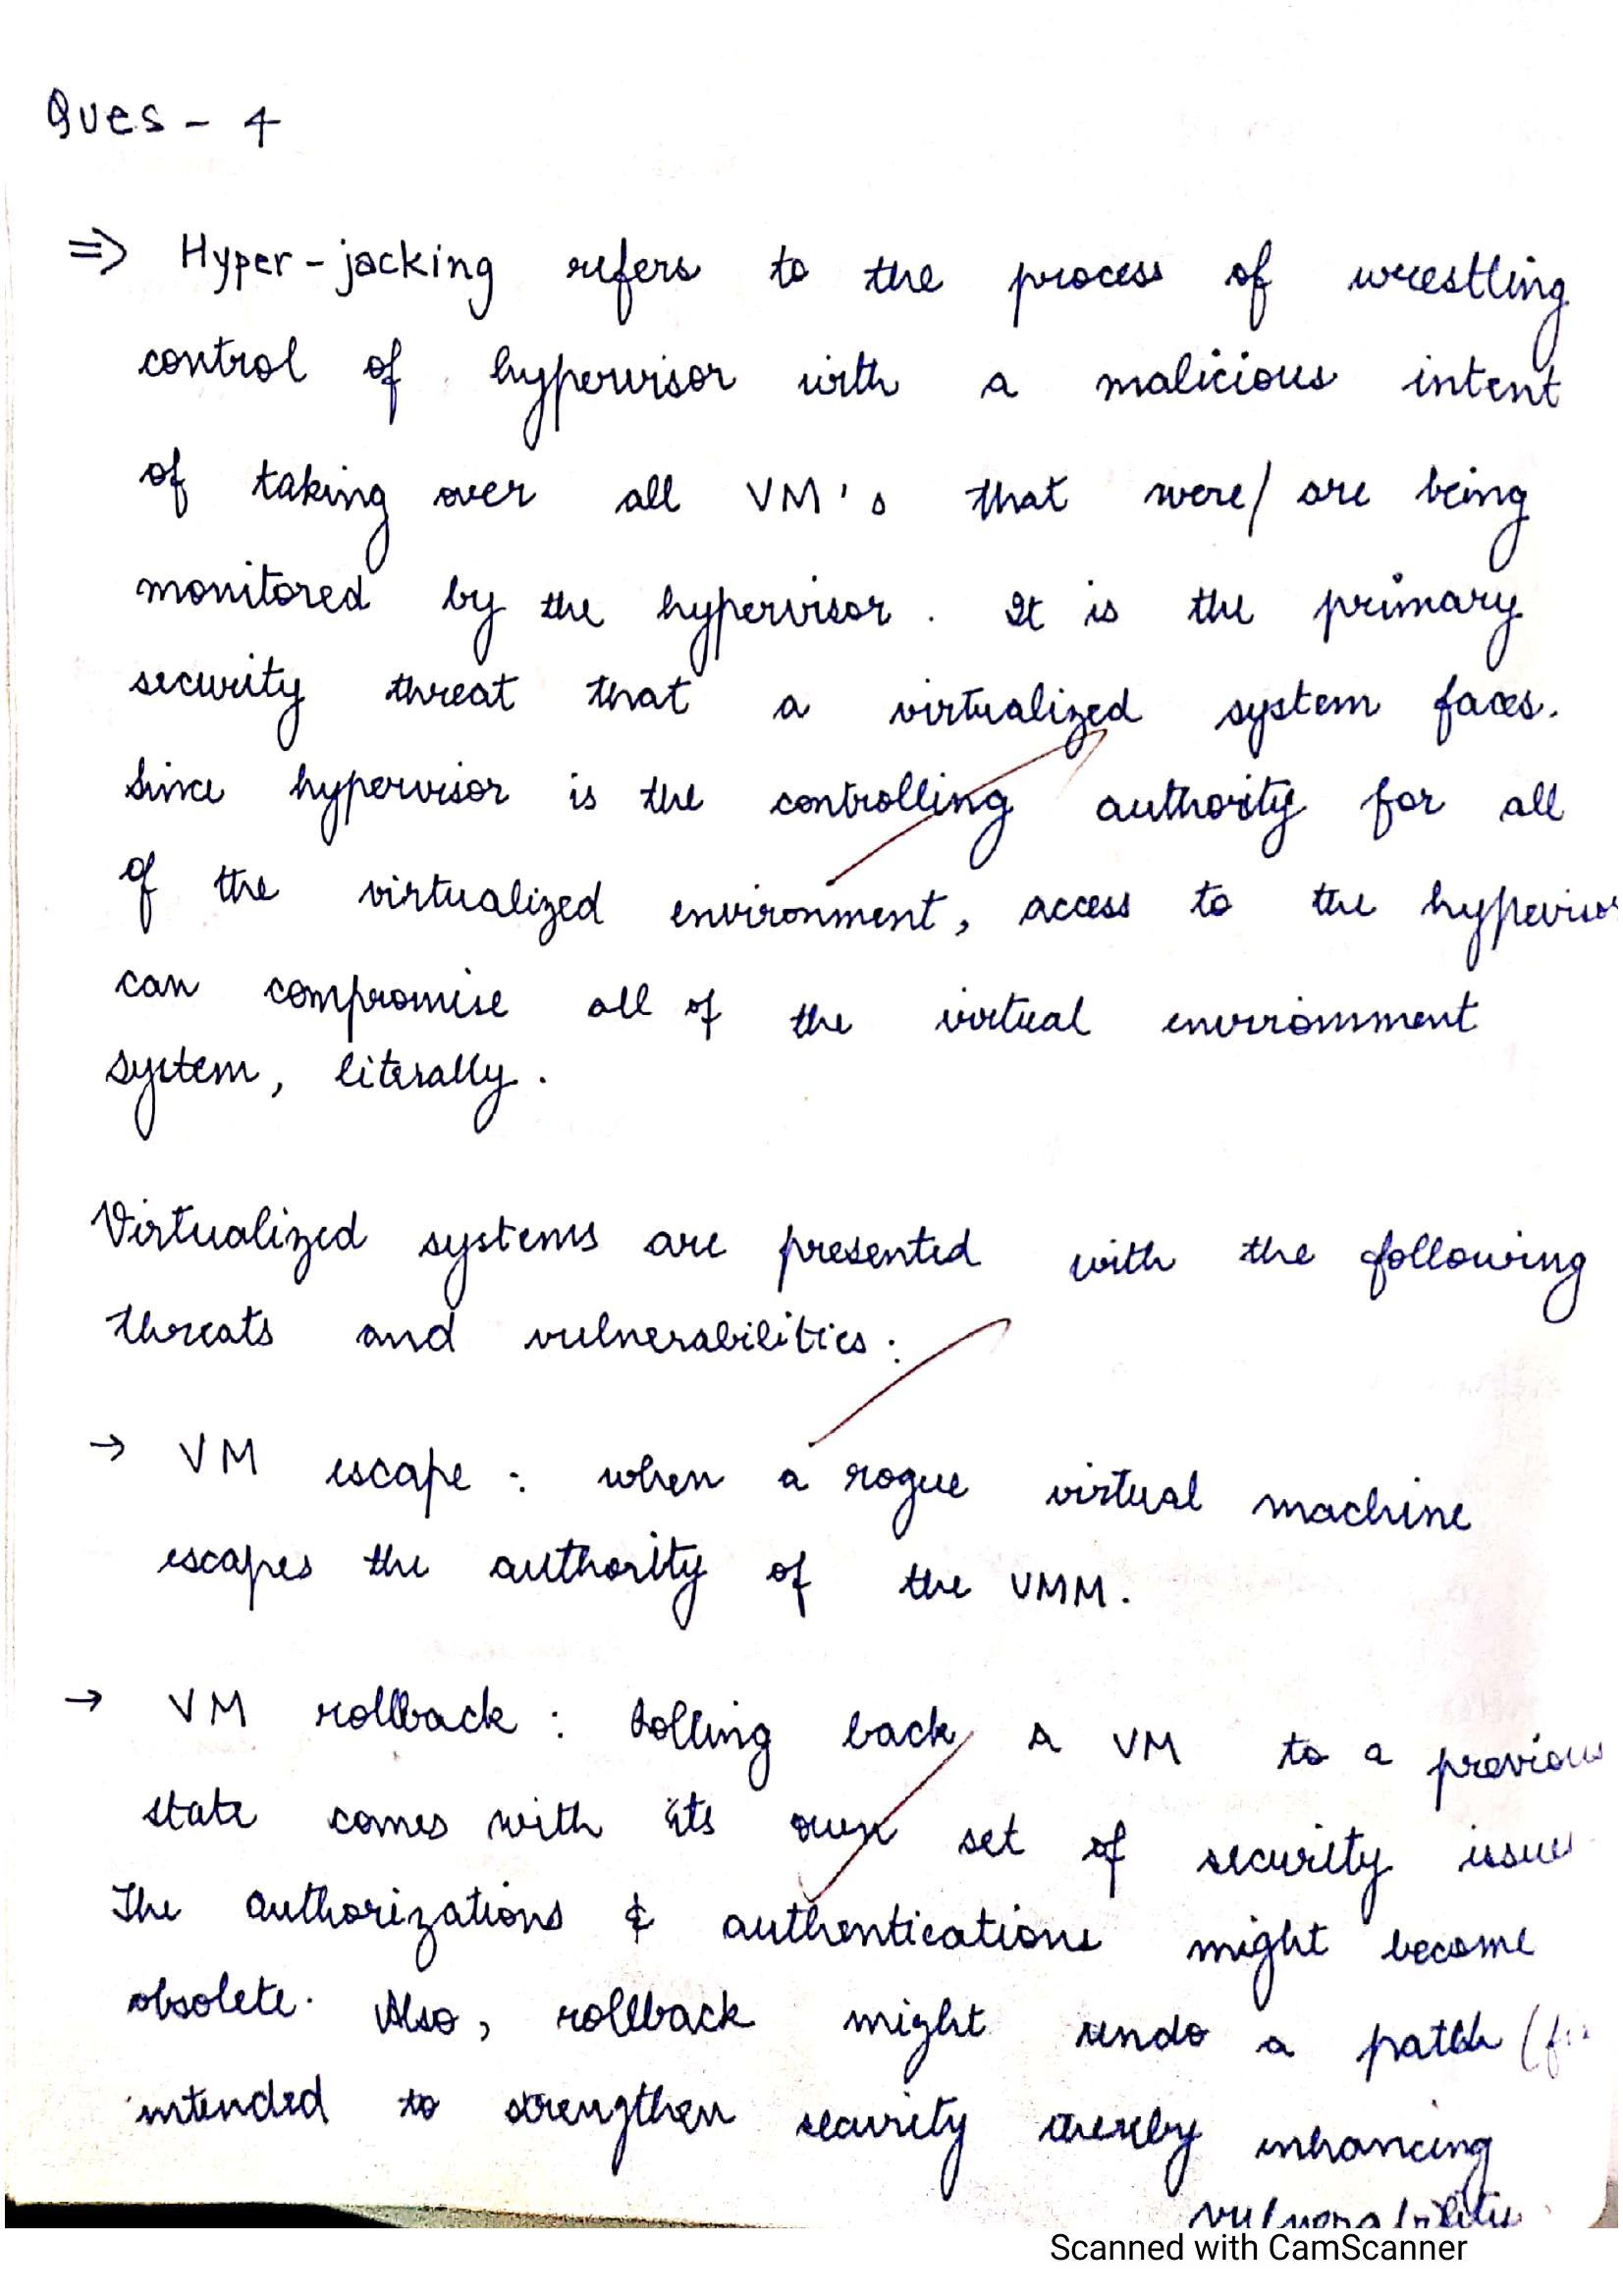 Ques - 4
=> Hyper-jacking refers to the process of wrestling
control of hypervisor with a malicious intent
of taking over all VM's that were/ are being
monitored by the hypervisor. It is the primary
security threat that a virtualized system faces.
Since hypervisor is the controlling authority for all
of the virtualized environment, access to the hypevisor
can compromise all of the virtual environment
system, literally.
Virtualized systems are presented with the following
threats and vulnerabilities:
→ VM escape : when a rogue virtual machine
escapes the authority of the VMM.
→ VM rollback : Rolling back a VM to a previous
state comes with its own set of security issues
The authorizations & authentications might become
obsolete. Also, rollback might undo a patch
intended to strengthen security thereby enhancing
vulnerability.
Scanned with CamScanner